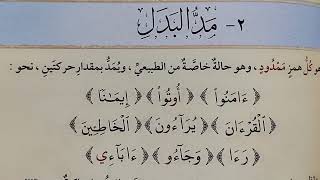 ٢- مَدُّ البَدَلِ
هو كُلُّ همزٍ مَمْدُودٍ ، وهو حالةٌ خاصَّةٌ من الطبيعيِّ ، ويُمَدُّ بمقدارِ حركتَينِ ، نحو :
﴿ ءَامَنُواْ ﴾ ﴿ أُوتُواْ ﴾ ﴿ إِيمَـٰنَا ﴾
﴿ الْقُرْءَانَ ﴾ ﴿ يُرَآءُونَ ﴾ ﴿ الْخَاطِـِٔينَ ﴾
﴿ رَءَا ﴾ ﴿ وَجَآءُو ﴾ ﴿ ءَابَآءِي ﴾